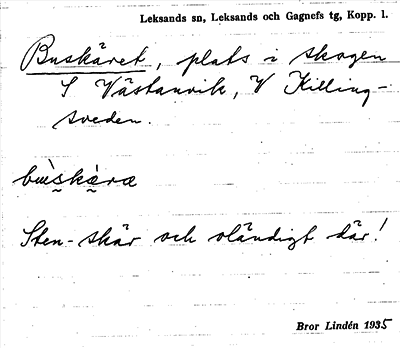 Leksands sn, Leksands och Gagnefs tg, Kopp. l.
Buskäret, plats i skogen
S Västanvik, V Killing-
sveden.
Sten-skär och oländigt där!
Bror Lindén 1935